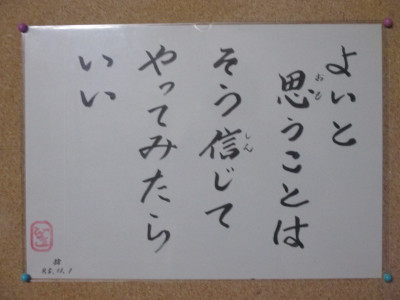 よいと
思うことは
そう信じて
やってみたら
いい